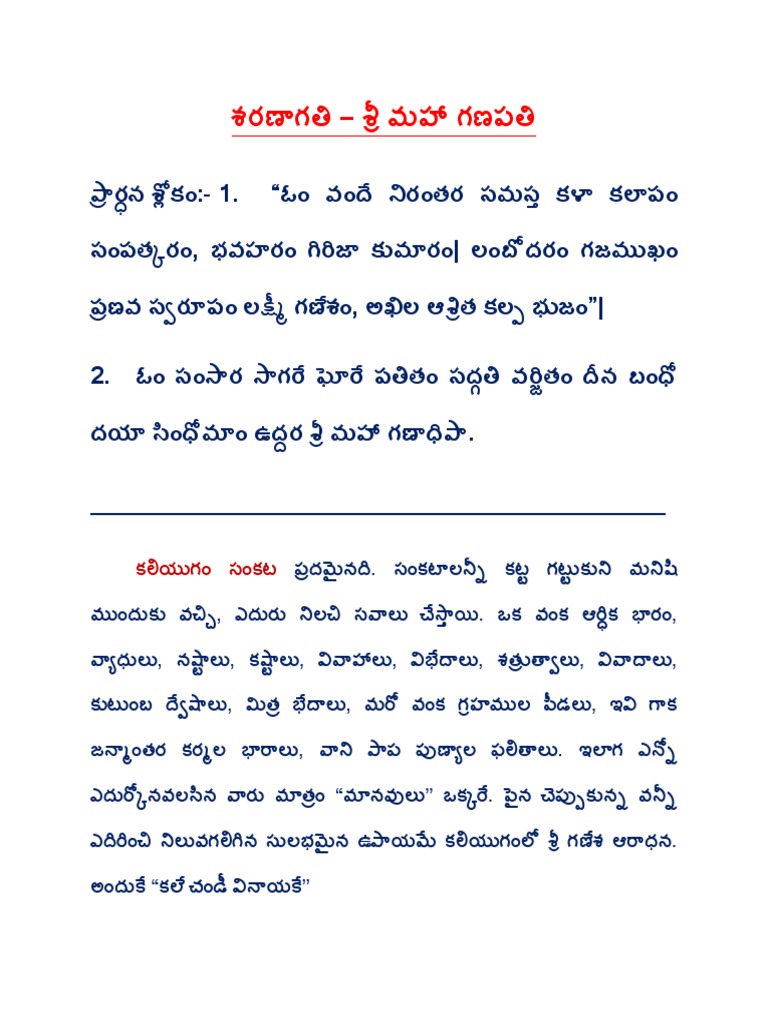 శరణాగతి – శ్రీ మహా గణపతి
ప్రార్ధన శ్లోకం:- 1. “ఓం వందే నిరంతర సమస్త కళా కలాపం
సంపత్కరం, భవహరం గిరిజా కుమారం| లంబోదరం గజముఖం
ప్రణవ స్వరూపం లక్ష్మీ గణేశం, అఖిల ఆశ్రిత కల్ప భుజం”|
2. ఓం సంసార సాగరే ఘోరే పతితం సద్గతి వర్జితం దీన బంధో
దయా సింధోమాం ఉద్దర శ్రీ మహా గణాధిపా.
కలియుగం సంకట ప్రదమైనది. సంకటాలన్నీ కట్ట గట్టుకుని మనిషి
ముందుకు వచ్చి, ఎదురు నిలచి సవాలు చేస్తాయి. ఒక వంక ఆర్ధిక భారం,
వ్యాధులు, నష్టాలు, కష్టాలు, వివాహాలు, విభేదాలు, శత్రుత్వాలు, వివాదాలు,
కుటుంబ ద్వేషాలు, మిత్ర భేదాలు, మరో వంక గ్రహముల పీడలు, ఇవి గాక
జన్మాంతర కర్మల భారాలు, వాని పాప పుణ్యాల ఫలితాలు. ఇలాగ ఎన్నో
ఎదుర్కోనవలసిన వారు మాత్రం “మానవులు” ఒక్కరే. పైన చెప్పుకున్న వన్నీ
ఎదిరించి నిలువగలిగిన సులభమైన ఉపాయమే కలియుగంలో శ్రీ గణేశ ఆరాధన.
అందుకే “కలే చండీ వినాయకే”